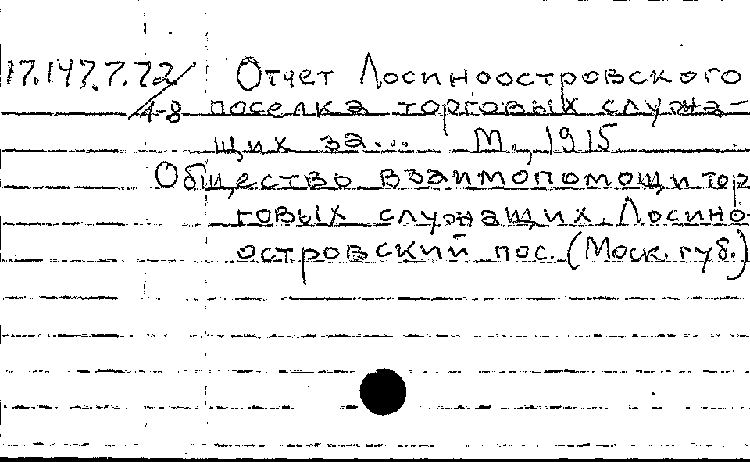 17.147.7.72/4-8 Отчет Лосиноостровского
поселка торговых служа-
щих за... М., 1915
Общество взаимопомощи тор
говых служащих. Лосино-
островский пос. (Моск. губ.)